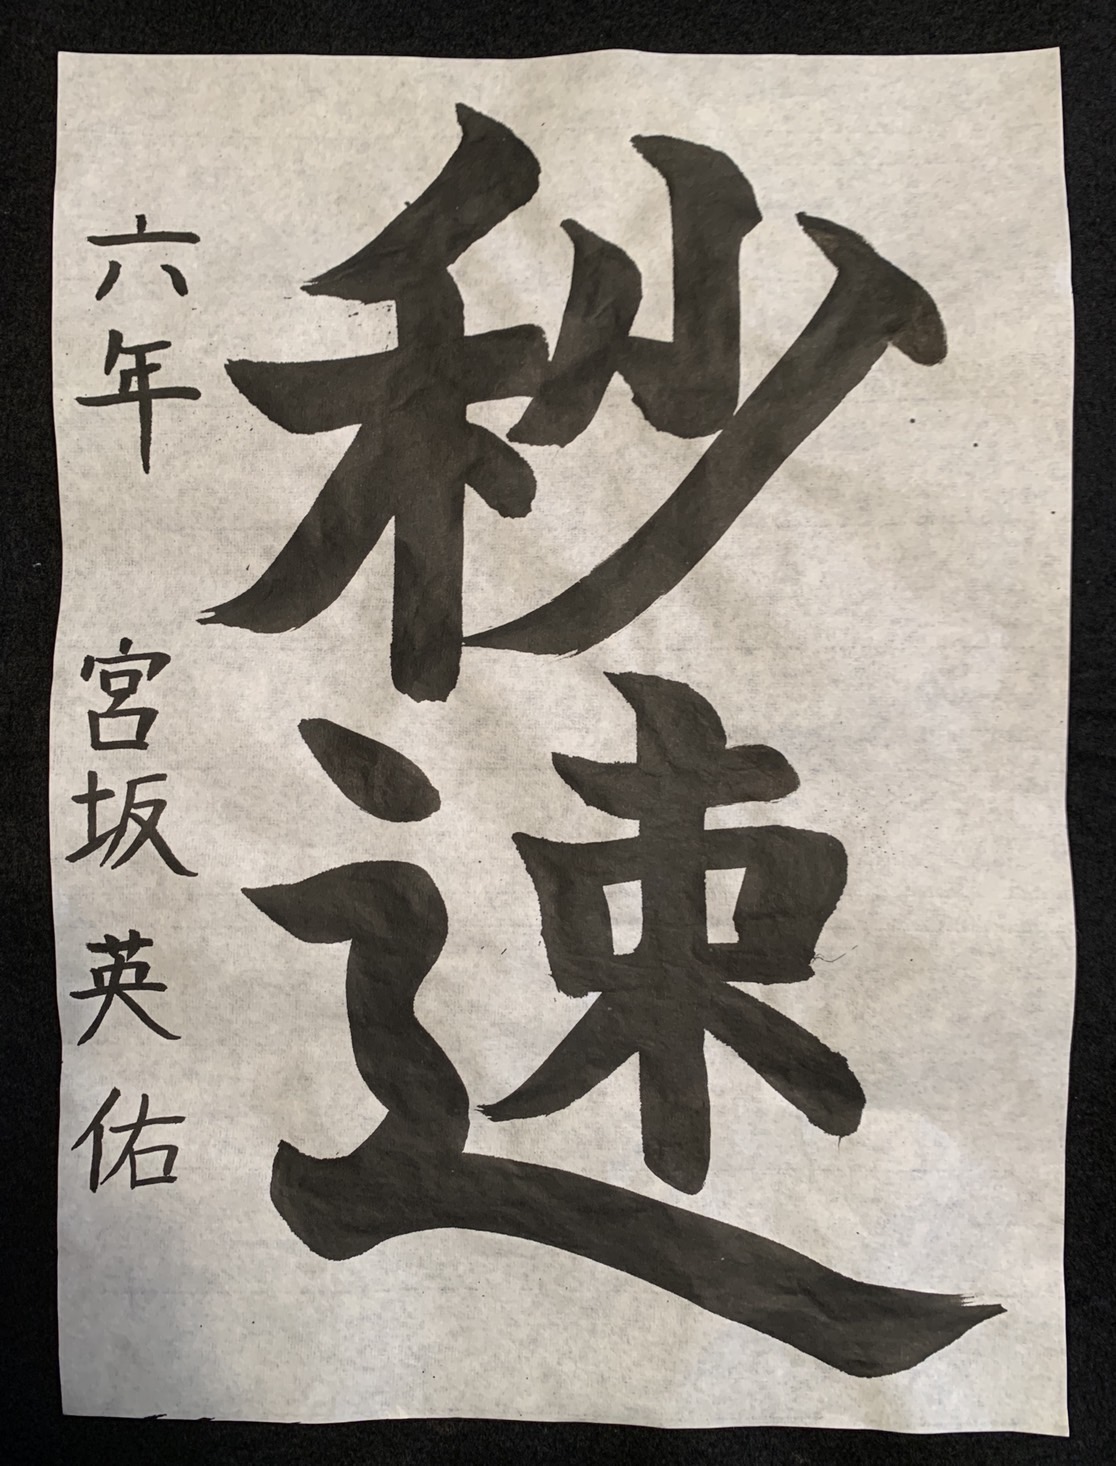 秒速
六年 宮坂英佑